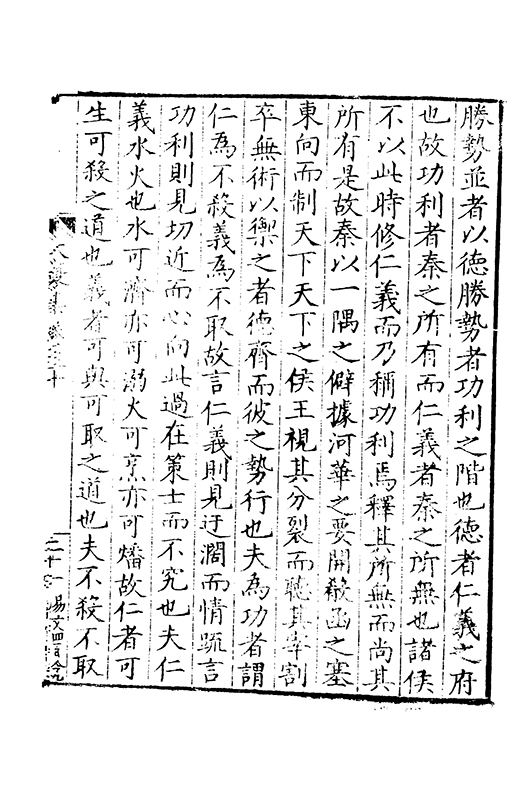 勝勢並者以德勝勢者功利之階也德者仁義之府
也故功利者秦之所有而仁義者秦之所無也諸侯
不以此時修仁義而乃稱功利焉釋其所無而尚其
所有是故秦以一隅之僻據河華之要開殽函之塞
東向而制天下天下之侯王視其分裂而聽其宰割
卒無術以禦之者德齊而彼之勢行也夫為功者謂
仁為不殺義為不取故言仁義則見迂濶而情疏言
功利則見切近而心向此過在策士而不究也夫仁
義水火也水可濟亦可溺火可烹亦可燔故仁者可
生可殺之道也義者可與可取之道也夫不殺不取